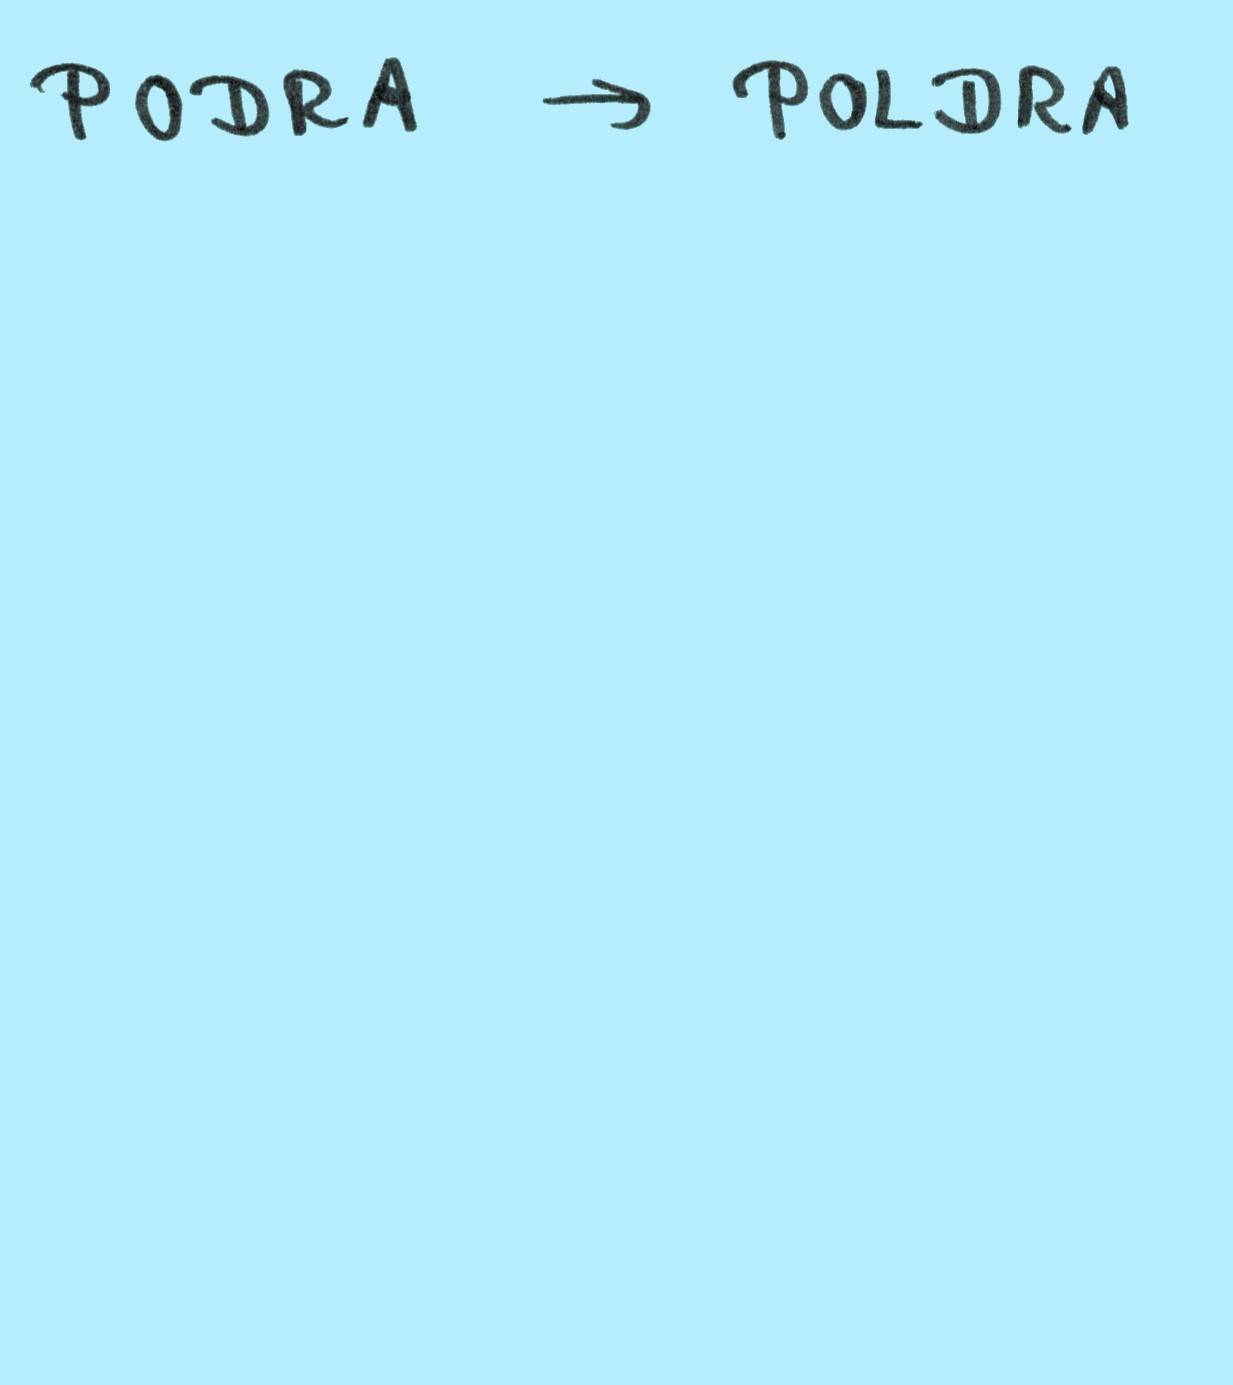 PODRA → POLDRA